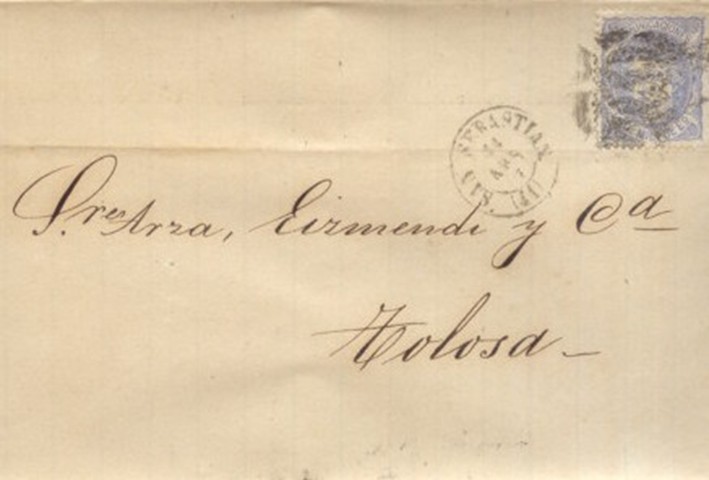 SAN SEBASTIAN
S.res Arza, Eizmendi y Cª
Tolosa